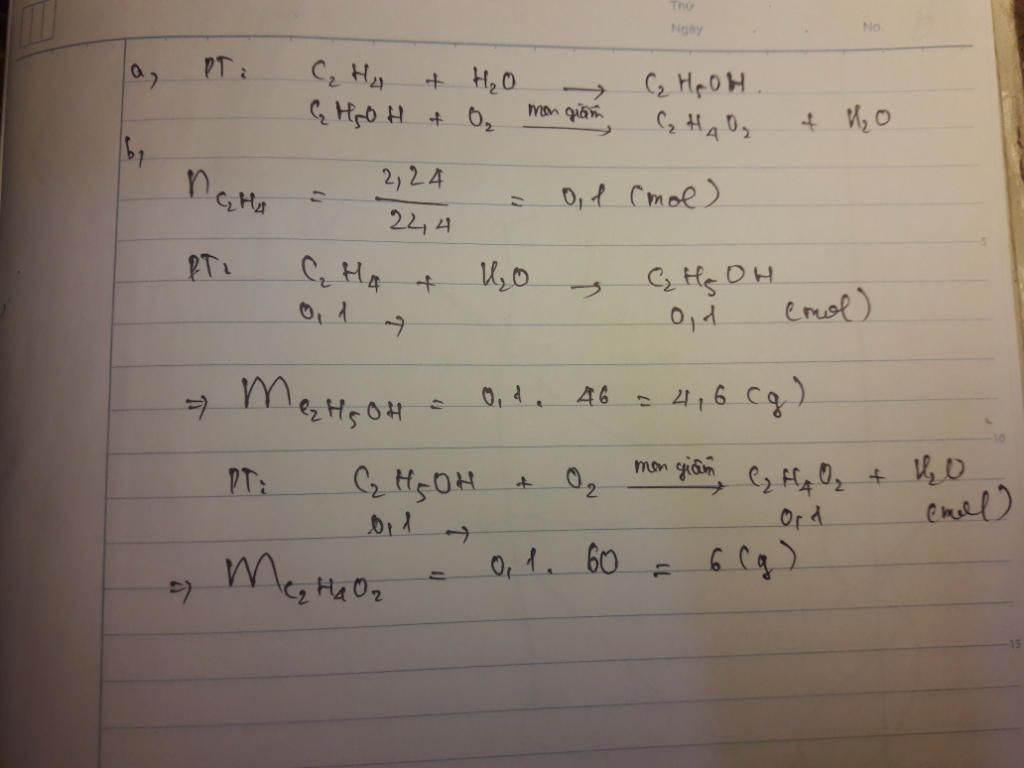 Thứ
Ngày . . No.
a, PT: C₂H₄ + H₂O → C₂H₅OH.
C₂H₅OH + O₂ men giấm → C₂H₄O₂ + H₂O
b,
n C₂H₄ = 2,24 / 22,4 = 0,1 (mol)
5
PT: C₂H₄ + H₂O → C₂H₅OH
0,1 → 0,1 (mol)
=> m C₂H₅OH = 0,1. 46 = 4,6 (g)
10
PT: C₂H₅OH + O₂ men giấm → C₂H₄O₂ + H₂O
0,1 → 0,1 (mol)
=> m C₂H₄O₂ = 0,1. 60 = 6 (g)
15